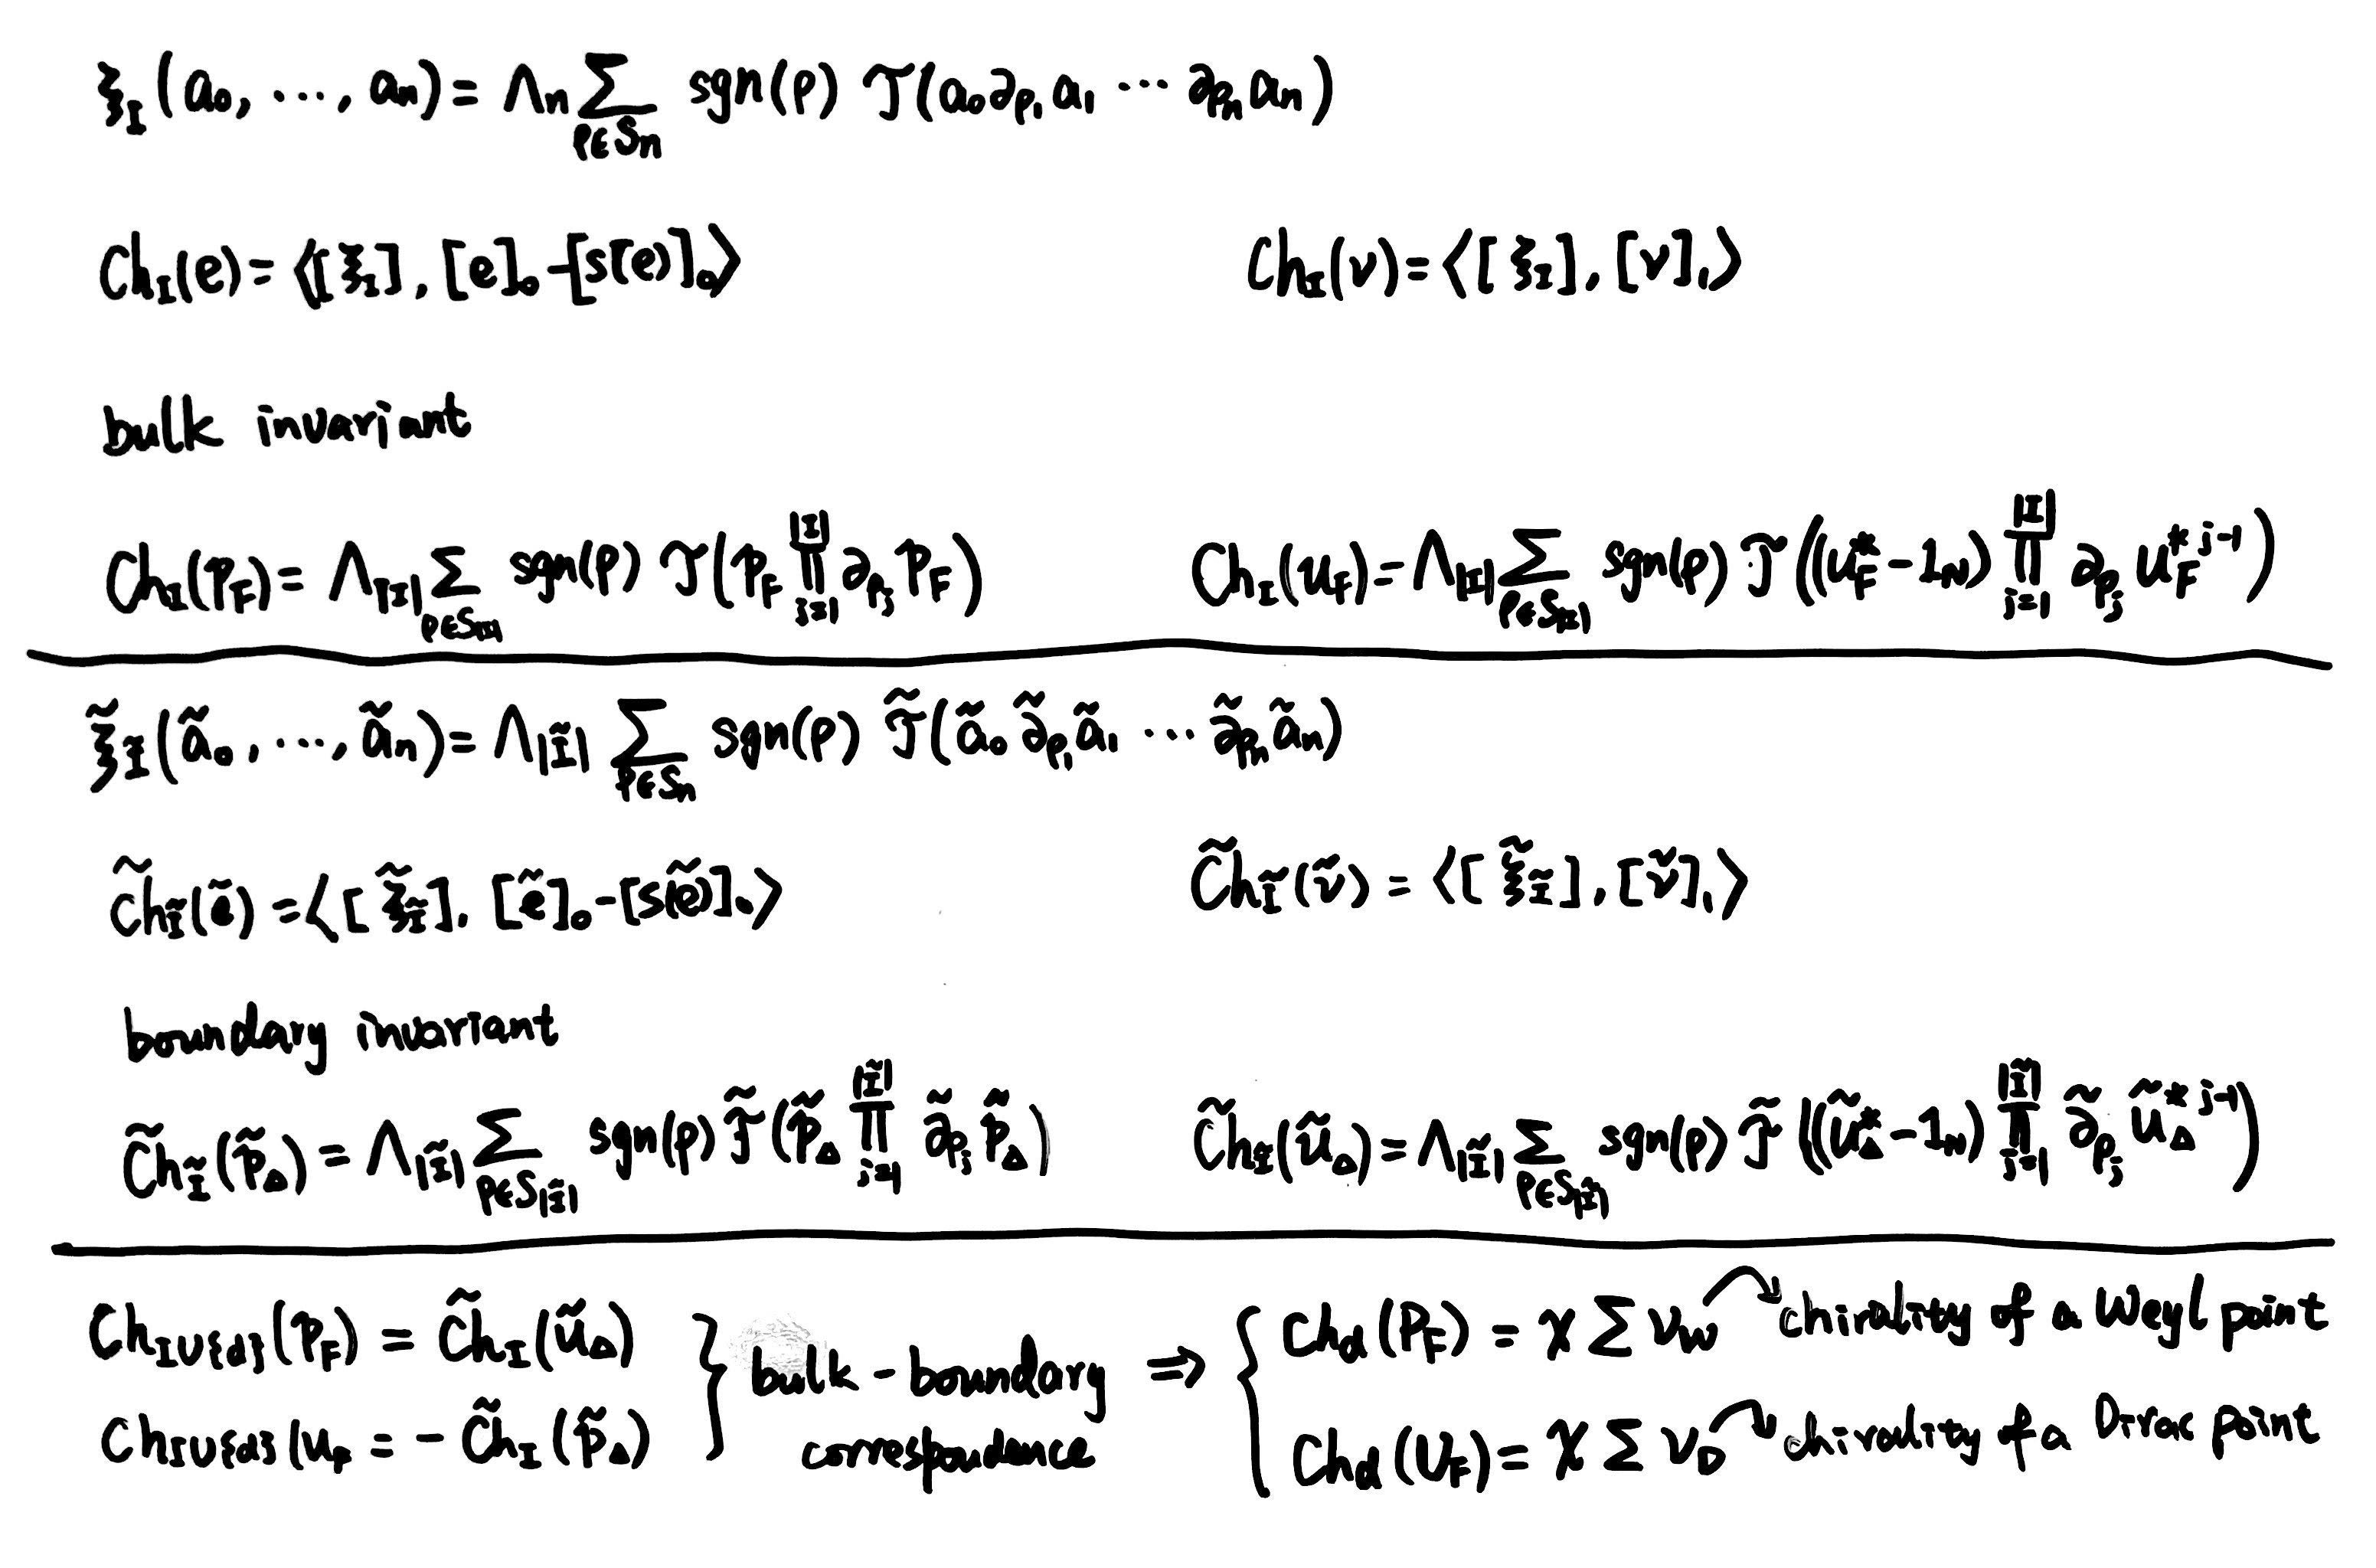 ξ_I(a₀, ⋯, aₙ) = Λₙ ∑_{ρ∈Sₙ} sgn(ρ) 𝒯(a₀∂_{ρ₁}a₁ ⋯ ∂_{ρₙ}aₙ)
Ch_I(e) = ⟨[ξ_I], [e]₀-[s(e)]₀⟩ Ch_I(v) = ⟨[ξ_I], [v]₁⟩
bulk invariant
Ch_I(p_F) = Λ_{|I|} ∑_{ρ∈S_{|I|}} sgn(ρ) 𝒯(p_F ∏_{j=1}^{|I|} ∂_{ρ_j} p_F) Ch_I(u_F) = Λ_{|I|} ∑_{ρ∈S_{|I|}} sgn(ρ) 𝒯((u_F^*-1_N) ∏_{j=1}^{|I|} ∂_{ρ_j} u_F^{* j-1})
ξ̃_I(ã₀, ⋯, ãₙ) = Λ_{|Ĩ|} ∑_{ρ∈Sₙ} sgn(ρ) 𝒯̃(ã₀∂̃_{ρ₁}ã₁ ⋯ ∂̃_{ρₙ}ãₙ)
C̃h_Ĩ(ẽ) = ⟨[ξ̃_Ĩ], [ẽ]₀-[s(ẽ)]₀⟩ C̃h_Ĩ(ṽ) = ⟨[ξ̃_Ĩ], [ṽ]₁⟩
boundary invariant
C̃h_Ĩ(p̃_Δ) = Λ_{|Ĩ|} ∑_{ρ∈S_{|Ĩ|}} sgn(ρ) 𝒯̃(p̃_Δ ∏_{j=1}^{|Ĩ|} ∂̃_{ρ_j} p̃_Δ) C̃h_Ĩ(ũ_Δ) = Λ_{|Ĩ|} ∑_{ρ∈S_{|Ĩ|}} sgn(ρ) 𝒯̃((ũ_Δ^*-1_N) ∏_{j=1}^{|Ĩ|} ∂̃_{ρ_j} ũ_Δ^{* j-1})
Ch_{I∪{d}}(p_F) = C̃h_I(ũ_Δ)
Ch_{I∪{d}}(u_F = - C̃h_I(p̃_Δ)
bulk-boundary
correspondence
⇒
Ch_d(P_F) = χ ∑ ν_W chirality of a Weyl point
Ch_d(U_F) = χ ∑ ν_D chirality of a Dirac point